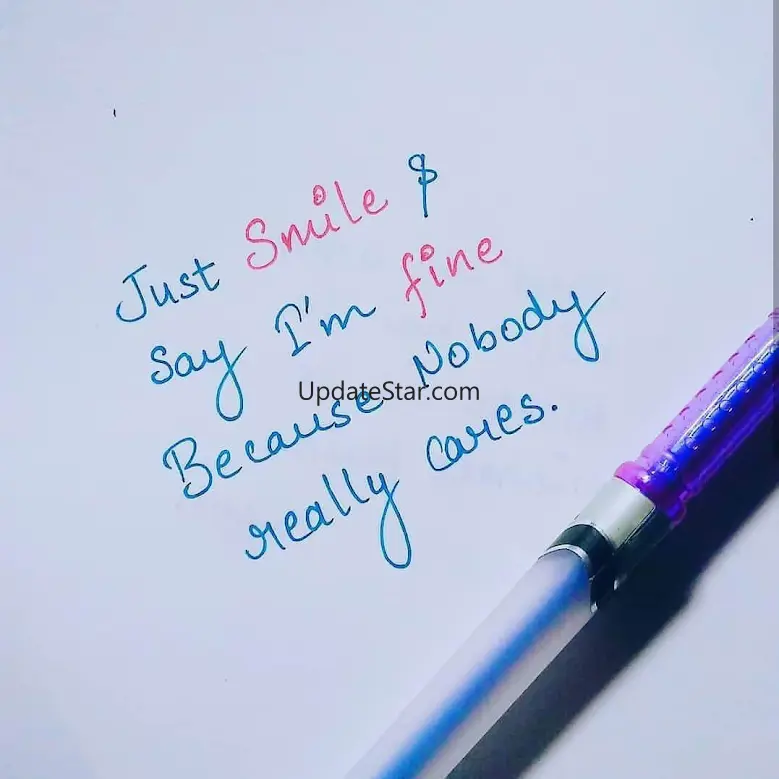 Just Smile &
say I'm fine
Because Nobody
UpdateStar.com
really cares.